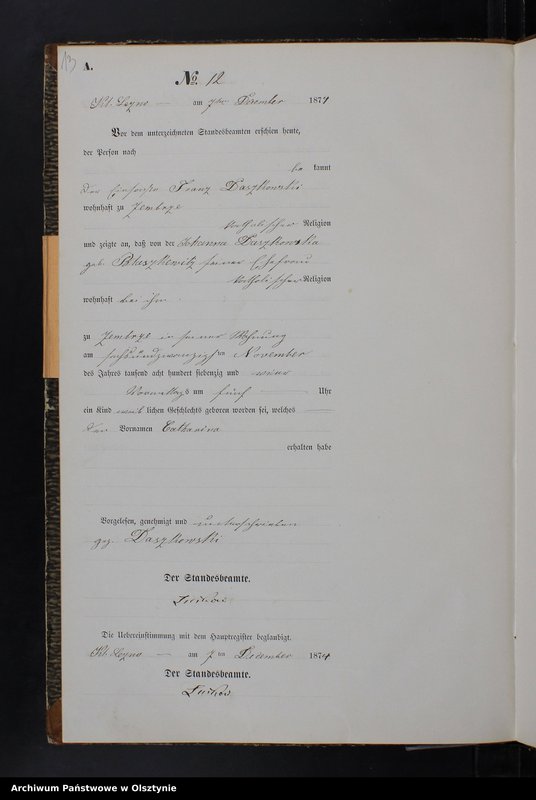 13
A.
No. 12
am 7ten December 1874
Vor dem unterzeichneten Standesbeamten erschien heute,
der Person nach
be kannt
der Franz Daszkowski
wohnhaft zu Jembrze
katholischer Religion
und zeigte an, daß von der Johanna Daszkowska
geb. seiner Ehefrau
katholischer Religion
wohnhaft bei ihm
zu Jembrze in seiner Wohnung
am sechsundzwanzigsten November
des Jahres tausend acht hundert siebenzig und vier
Vormittags um fünf Uhr
ein Kind weib lichen Geschlechts geboren worden sei, welches
den Vornamen Catharina
erhalten habe
Vorgelesen, genehmigt und unterschrieben
gez. Daszkowski
Der Standesbeamte.
Die Uebereinstimmung mit dem Hauptregister beglaubigt.
am 7ten December 1874
Der Standesbeamte.
Archiwum Państwowe w Olsztynie